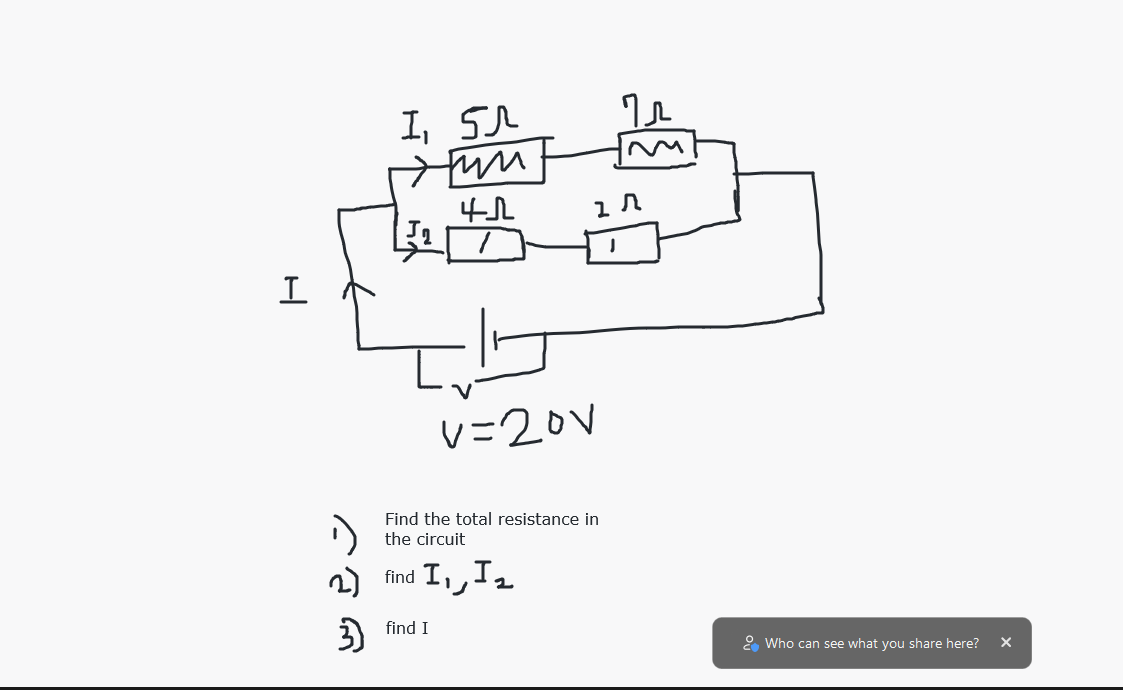 I₁ 5Ω 7Ω
I₂ 4Ω 2Ω
I
V
V=20V
1) Find the total resistance in
the circuit
2) find I₁, I₂
3) find I
Who can see what you share here?